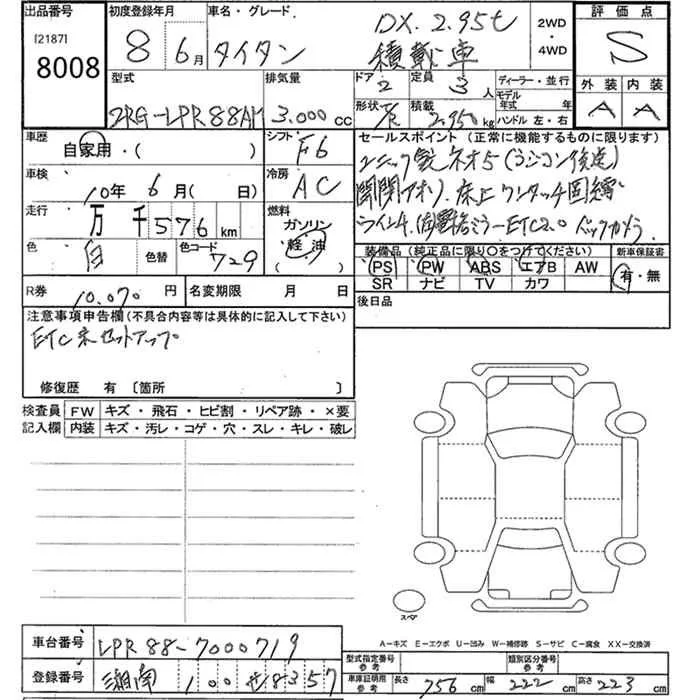 出品番号 初度登録年月 車名・グレード 評価点
[2187]
8008
8年 6月
タイタン
DX. 2.95t
積載車
2WD・4WD
S
外装 内装
A A
型式 排気量 ドア 定員 ディーラー・並行
2RG-LPR88AM 3.000cc 2 3人
モデル年式 年式
形状 積載 ハンドル 左・右
2.950kg
車歴 シフト セールスポイント (正常に機能するものに限ります)
自家用・( ) F6
ユニック製ネオ5(ラジコン後送)
車検 冷房
10年 6月( 日) AC
開閉アオリ. 床上ワンタッチ固縛
走行 燃料
万 千576km ガソリン
軽油
ラインチ. ETC2.0 バックカメラ.
色 色替 色コード
白 729
装備品 (純正品に限り○をつけてください) 新車保証書
PS PW ABS エアB AW
SR ナビ TV カワ
有・無
R券 10.070円 名変期限 月 日
後日品
注意事項申告欄(不具合内容等は具体的に記入して下さい)
ETC未セットアップ
修復歴 有 [箇所 ]
検査員 FW キズ・飛石・ヒビ割・リペア跡・×要
記入欄 内装 キズ・汚レ・コゲ・穴・スレ・キレ・破レ
スペア
A-キズ E-エクボ U-凹み W-補修跡 S-サビ C-腐食 XX-交換済
車台番号 LPR88-7000719
型式指定番号 参考 類別区分番号 参考
登録番号 湘南 100 8357
車庫証明用 参考 長さ 756cm 幅 222cm 高さ 223cm